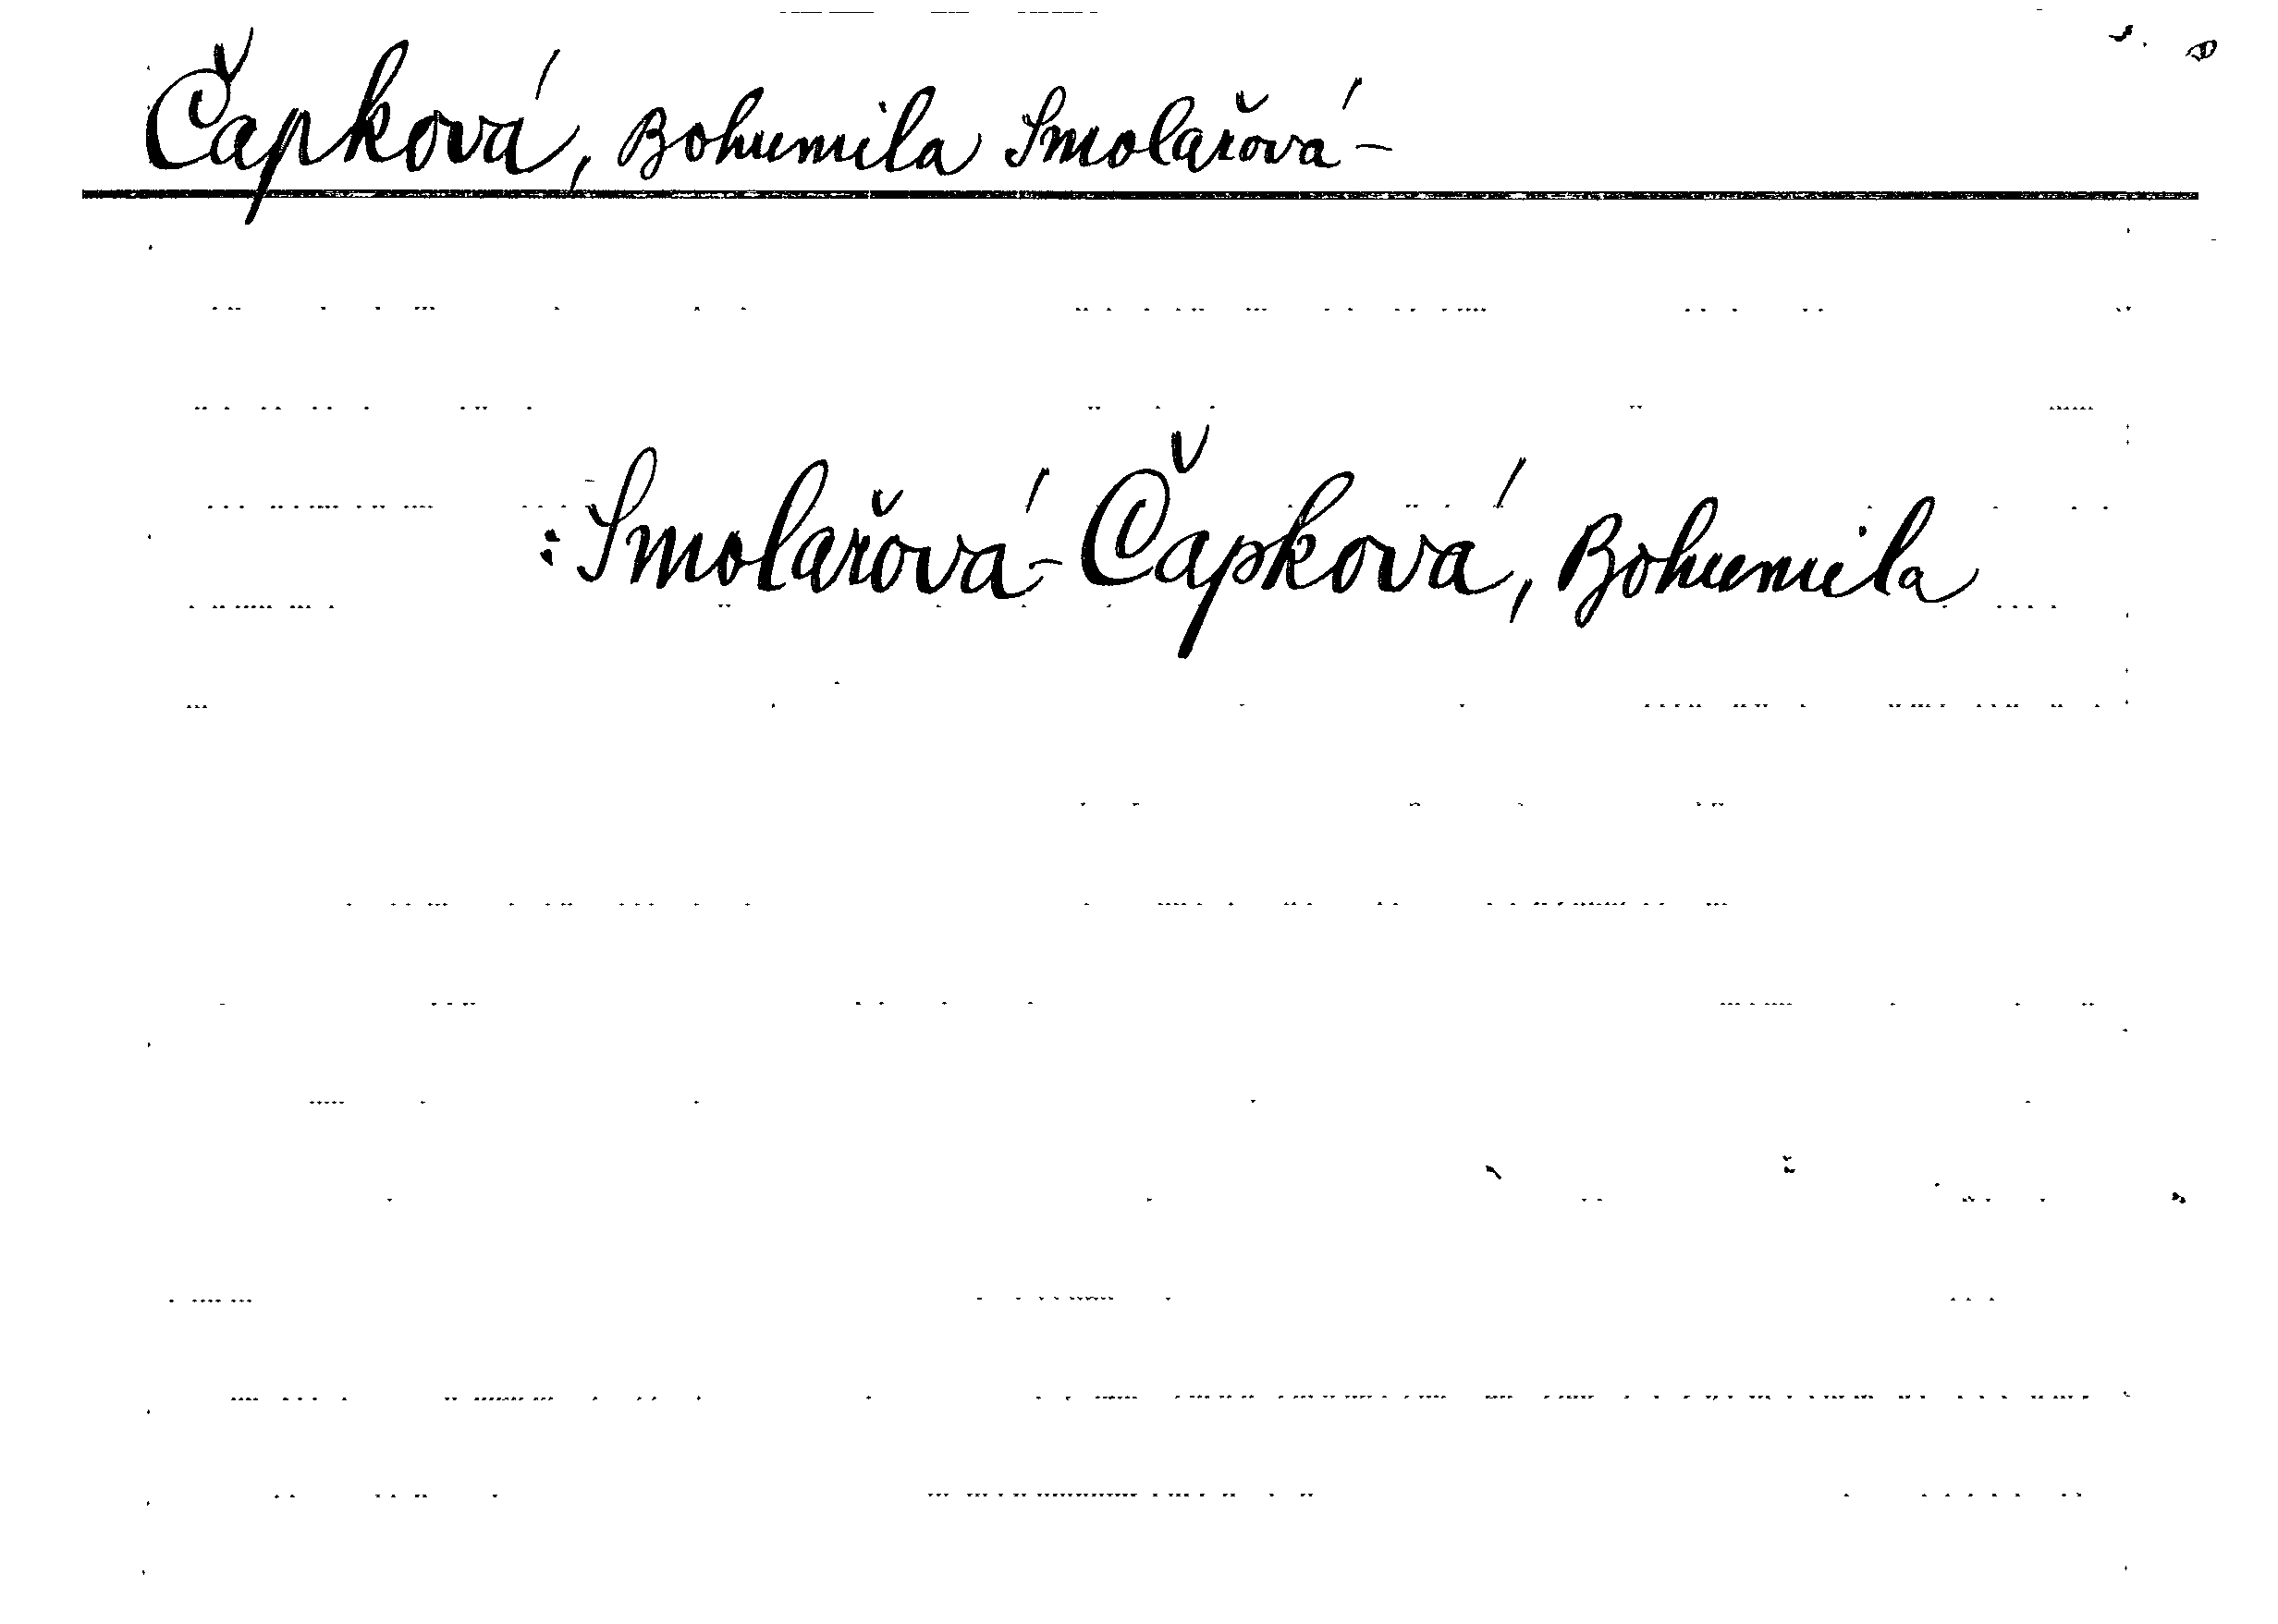 Čapková, Bohumila Smolařová-
:Smolařová-Čapková, Bohumila